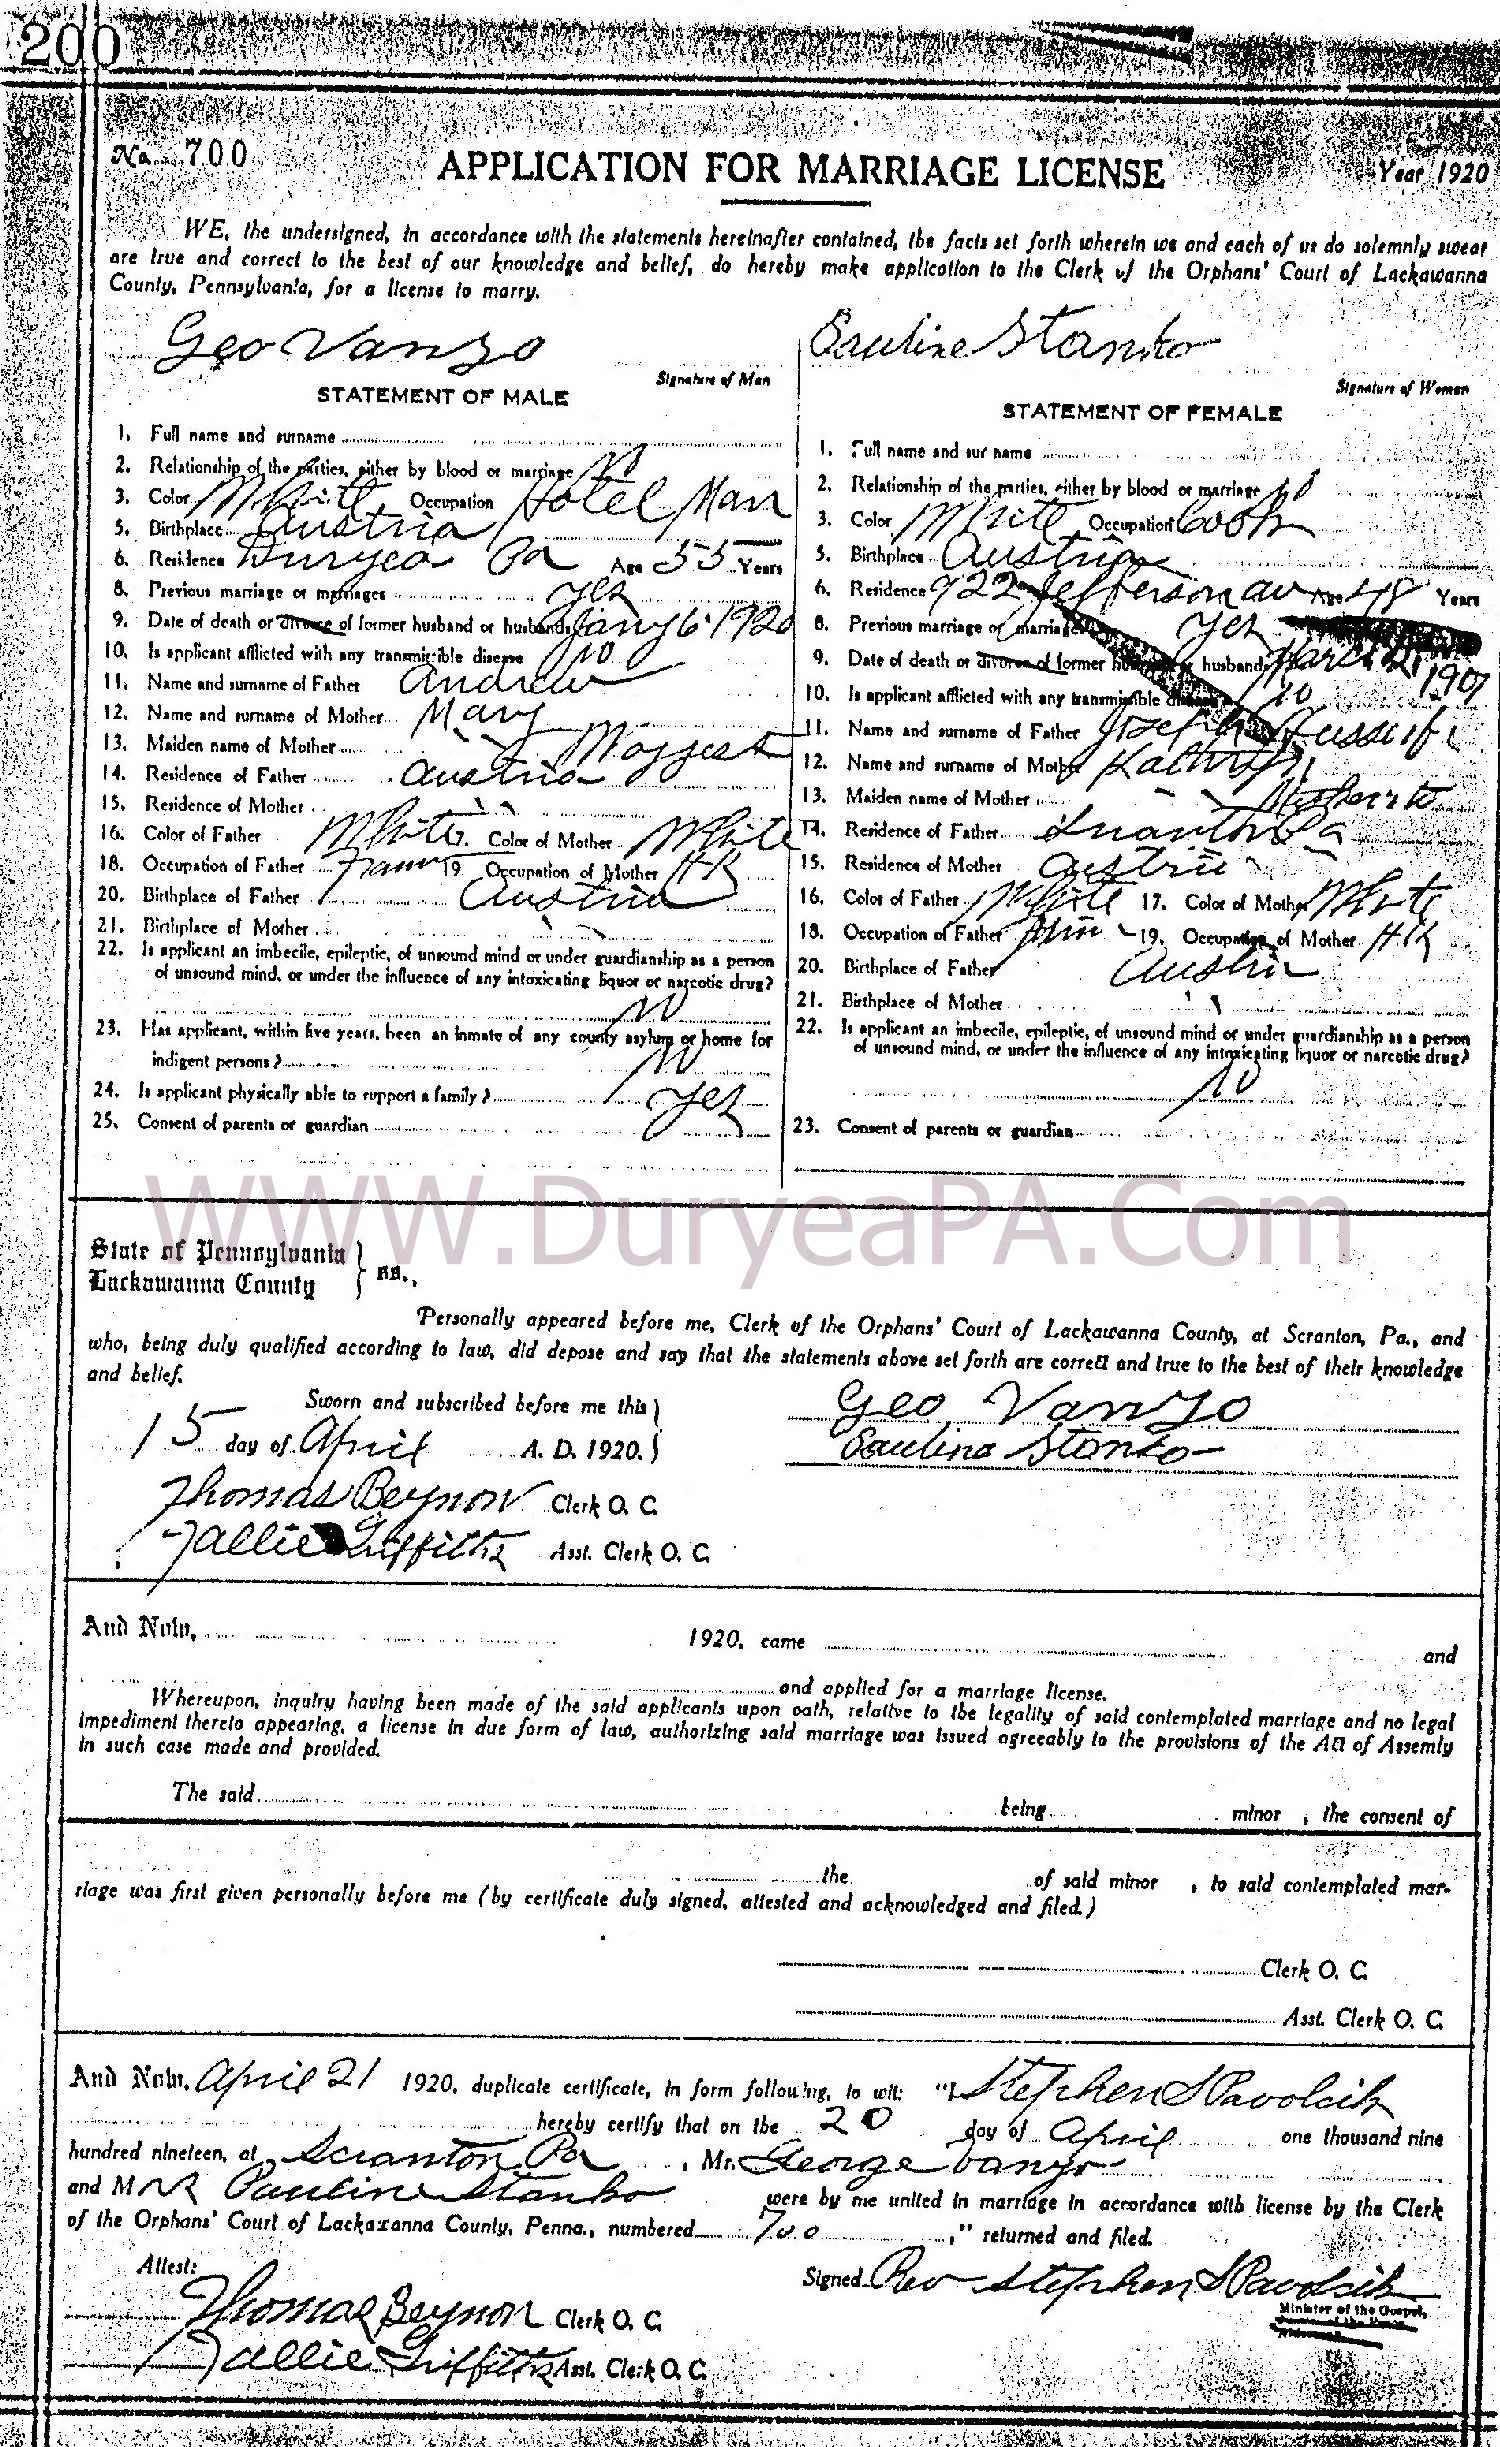 200
No. 700
APPLICATION FOR MARRIAGE LICENSE
Year 1920
WE, the undersigned, in accordance with the statements hereinafter contained, the facts set forth wherein we and each of us do solemnly swear
are true and correct to the best of our knowledge and belief, do hereby make application to the Clerk of the Orphans' Court of Lackawanna
County, Pennsylvania, for a license to marry.
Geo Vanyo
Signature of Man
STATEMENT OF MALE
1. Full name and surname
2. Relationship of the parties, either by blood or marriage No
3. Color White Occupation Hotel Man
5. Birthplace Austria
6. Residence Duryea Pa Age 55 Years
8. Previous marriage or marriages yes
9. Date of death or divorce of former husband or husbands Jany 6. 1920
10. Is applicant afflicted with any transmissible disease No
11. Name and surname of Father Andrew
12. Name and surname of Mother Mary
13. Maiden name of Mother
14. Residence of Father Austria
15. Residence of Mother " "
16. Color of Father White. Color of Mother White
18. Occupation of Father Farmr 19 Occupation of Mother HK
20. Birthplace of Father Austria
21. Birthplace of Mother " "
22. Is applicant an imbecile, epileptic, of unsound mind or under guardianship as a person
of unsound mind, or under the influence of any intoxicating liquor or narcotic drug?
No
23. Has applicant, within five years, been an inmate of any county asylum or home for
indigent persons? No
24. Is applicant physically able to support a family? yes
25. Consent of parents or guardian
Pauline Stanko
Signature of Woman
STATEMENT OF FEMALE
1. Full name and sur name
2. Relationship of the parties, either by blood or marriage No
3. Color White Occupation Cook
5. Birthplace Austria
6. Residence 922 Jefferson av Age 48 Years
8. Previous marriage or marriages yes
9. Date of death or divorce of former husband or husbands March 1907
10. Is applicant afflicted with any transmissible disease No
11. Name and surname of Father Joseph
12. Name and surname of Mother
13. Maiden name of Mother
14. Residence of Father
15. Residence of Mother Austria
16. Color of Father White 17. Color of Mother White
18. Occupation of Father 19. Occupation of Mother HK
20. Birthplace of Father Austria
21. Birthplace of Mother " "
22. Is applicant an imbecile, epileptic, of unsound mind or under guardianship as a person
of unsound mind, or under the influence of any intoxicating liquor or narcotic drug?
No
23. Consent of parents or guardian
WWW.DuryeaPA.Com
State of Pennsylvania
Lackawanna County } ss.,
Personally appeared before me, Clerk of the Orphans' Court of Lackawanna County, at Scranton, Pa., and
who, being duly qualified according to law, did depose and say that the statements above set forth are correct and true to the best of their knowledge
and belief.
Sworn and subscribed before me this )
15 day of April A. D. 1920. )
Geo Vanyo
Paulina Stanko
Thomas Beynon Clerk O. C.
Tallie Griffiths Asst. Clerk O. C.
And Now, 1920, came and
and applied for a marriage license.
Whereupon, inquiry having been made of the said applicants upon oath, relative to the legality of said contemplated marriage and no legal
impediment thereto appearing, a license in due form of law, authorizing said marriage was issued agreeably to the provisions of the Act of Assemly
in such case made and provided.
The said being minor , the consent of
the of said minor , to said contemplated mar-
riage was first given personally before me (by certificate duly signed, attested and acknowledged and filed.)
Clerk O. C.
Asst. Clerk O. C.
And Now, April 21 1920, duplicate certificate, in form following, to wit: "I Stephen
hereby certify that on the 20 day of April one thousand nine
hundred nineteen, at Scranton Pa , Mr. George Vanyo
and Mrs Pauline Stanko were by me united in marriage in accordance with license by the Clerk
of the Orphans' Court of Lackaxanna County, Penna., numbered 700 ," returned and filed.
Attest:
Signed Rev Stephen
Minister of the Gospel,
Thomas Beynon Clerk O. C.
Tallie Griffiths Asst. Clerk O. C.